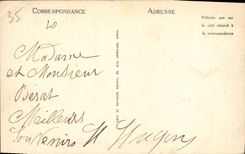 35
CORRESPONDANCE
ADRESSE
N'écrire que sur
le côté réservé à
la correspondance
20
Madame
et Monsieur
Bérat
Meilleurs
Souvenirs H Hugon